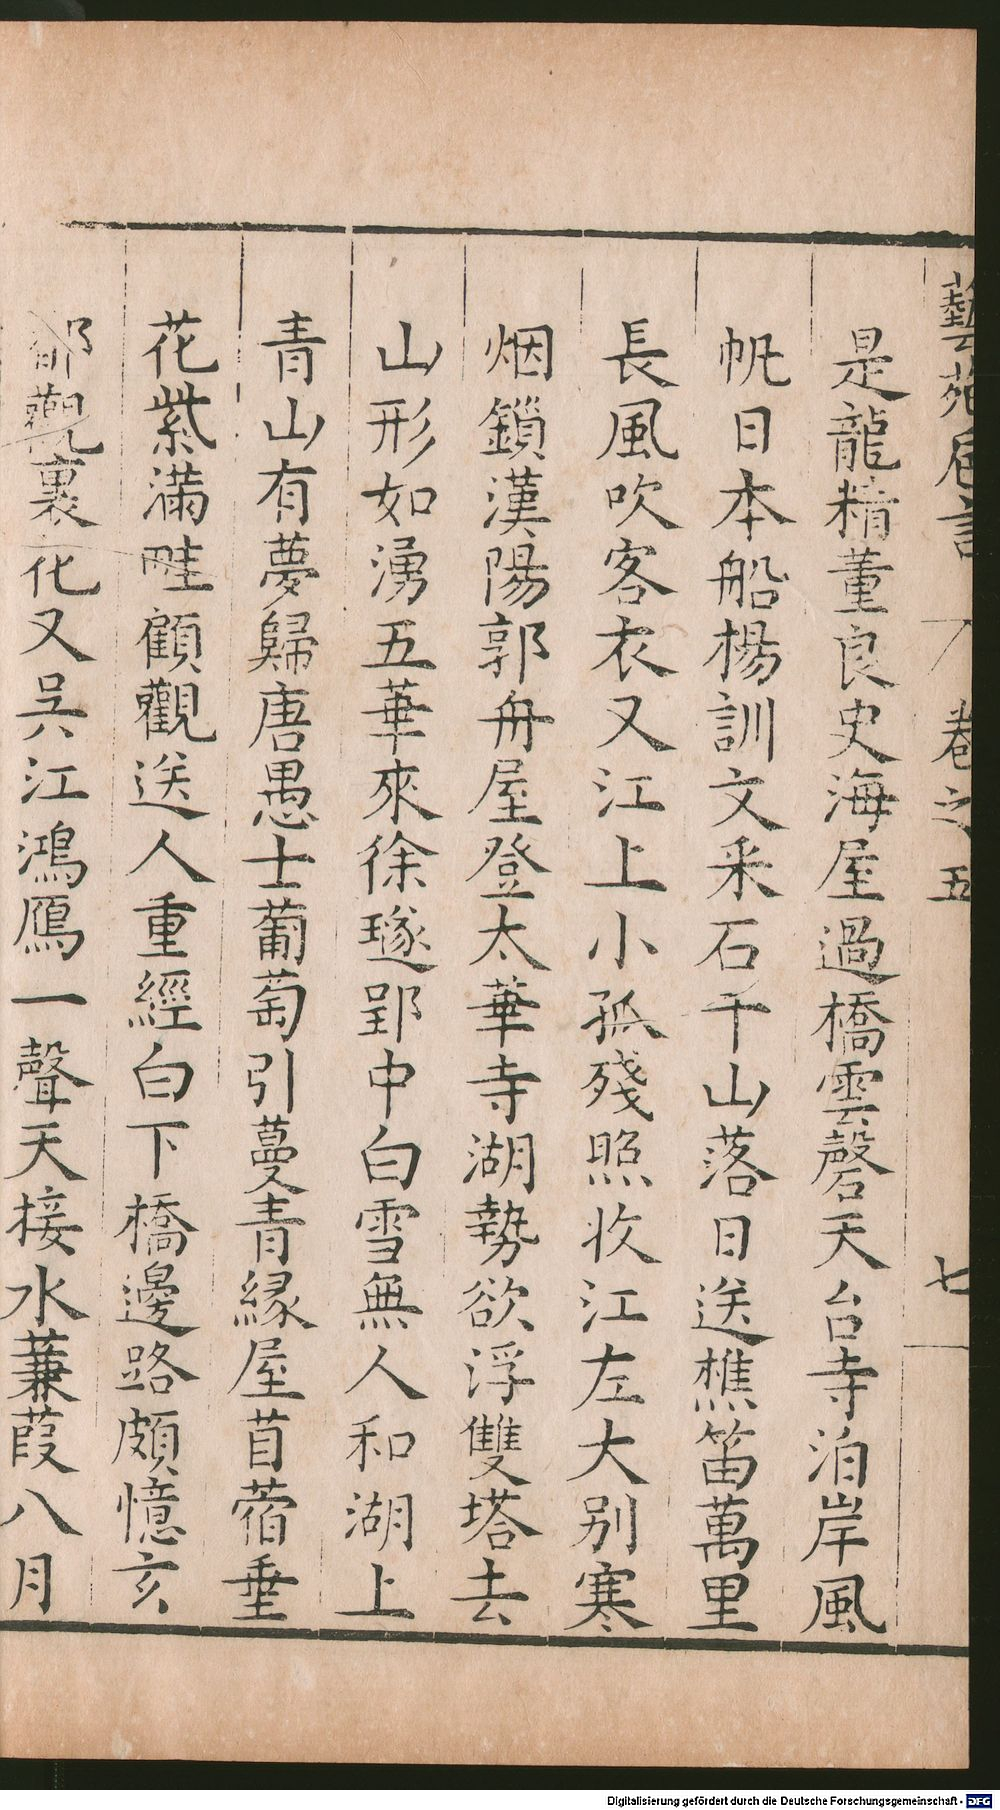 藝苑卮言 卷之五 七
是龍精董良史海屋過橋雲磬天台寺泊岸風
帆日本船楊訓文采石千山落日送樵笛萬里
長風吹客衣又江上小孤殘照收江左大別寒
烟鎖漢陽郭舟屋登太華寺湖勢欲浮雙塔去
山形如湧五華來徐璲郢中白雪無人和湖上
青山有夢歸唐愚士葡萄引蔓青緣屋苜蓿垂
花紫滿畦顧觀送人重經白下橋邊路頗憶玄
都觀裏花又吳江鴻鴈一聲天接水蒹葭八月
Digitalisierung gefördert durch die Deutsche Forschungsgemeinschaft - DFG